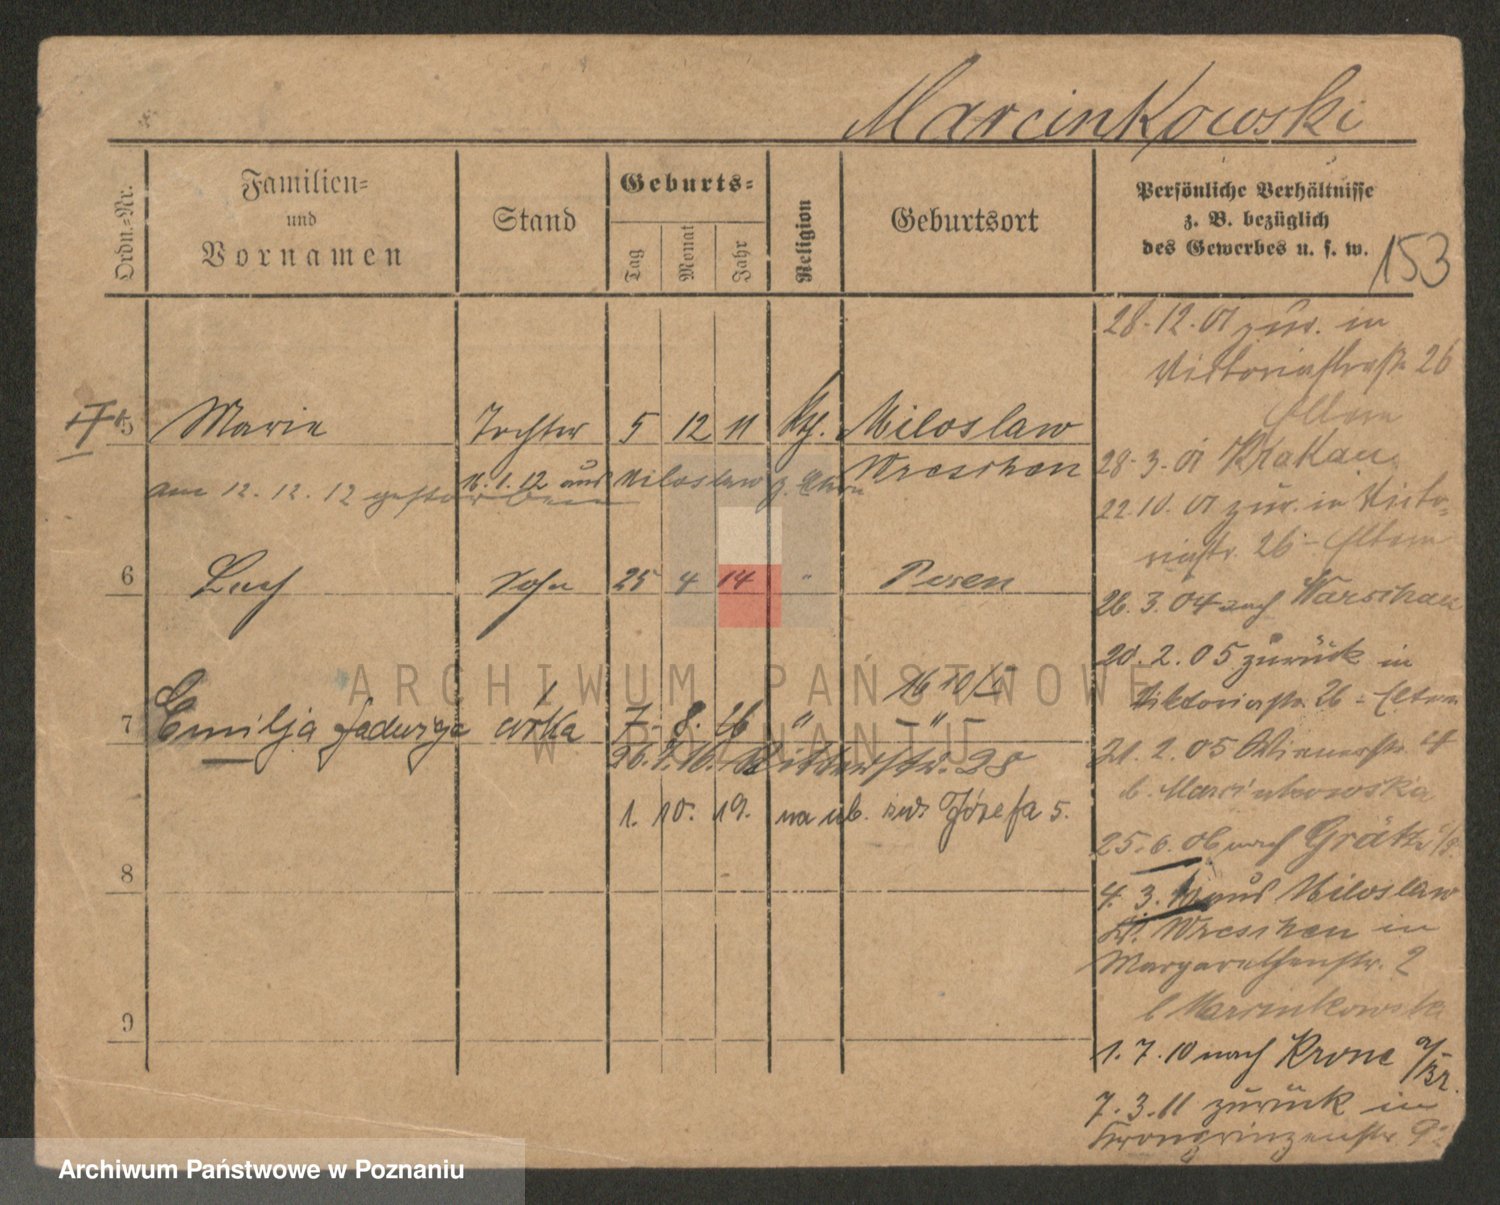 Marcinkowski
Ordn.-Nr.
Familien-
und
Vornamen
Stand
Geburts-
Tag
Monat
Jahr
Religion
Geburtsort
Persönliche Verhältnisse
z. B. bezüglich
des Gewerbes u. s. w.
153
5 Marie Tochter 5 12 11 Kth. Miloslaw
Wreschen
am 12. 12. 12 gestorben
16. 1. 12 aus Miloslaw z. Eltern
6 Lech Sohn 25 4 14 " Posen
16 10/5
7 Emilja Jadwiga córka 7. 8. 16 " - " -
26. 9. 16. Ritterstr. 28
1. 10. 19. na ub. św. Józefa 5.
8
9
28. 12. 01 zur. in
Victoriastraße 26
Eltern
28. 3. 01 Krakau
22. 10. 01 zur. in Victo-
riastr. 26 - Eltern
26. 3. 04 nach Warschau
20. 2. 05 zurück in
Viktoriastr. 26 - Eltern
21. 2. 05 Wienerstr.
b. Marcinkowska
25. 6. 06 nach Grätz
4. 3. 10 aus Miloslaw
Kr. Wreschen in
Margarethenstr. 2
b Marcinkowska
1. 7. 10 nach Krone a/Br.
7. 3. 11 zurück in
Kronprinzenstr.
ARCHIWUM PAŃSTWOWE
W POZNANIU
Archiwum Państwowe w Poznaniu